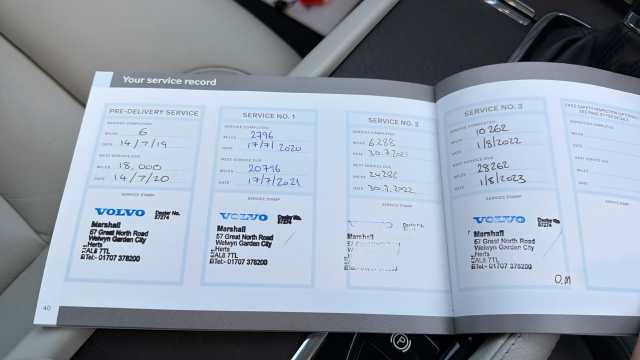 Your service record
PRE-DELIVERY SERVICE
SERVICE COMPLETED
MILES 6
DATE 14/7/19
NEXT SERVICE DUE
MILES 18,000
DATE 14/7/20
SERVICE STAMP
VOLVO Dealer No.
57274
Marshall
57 Great North Road
Welwyn Garden City
Herts
AL8 7TL
Tel:- 01707 378200
SERVICE NO. 1
SERVICE COMPLETED
MILES 2796
DATE 17/7/2020
NEXT SERVICE DUE
MILES 20796
DATE 17/7/2021
SERVICE STAMP
VOLVO Dealer No.
57274
Marshall
57 Great North Road
Welwyn Garden City
Herts
AL8 7TL
Tel:- 01707 378200
SERVICE NO. 2
SERVICE COMPLETED
MILES 6288
DATE 30.7.2021
NEXT SERVICE DUE
MILES 24288
DATE 30.7.2022
SERVICE STAMP
Marshall
SERVICE NO. 3
SERVICE COMPLETED
MILES 10262
DATE 1/8/2022
NEXT SERVICE DUE
MILES 28262
DATE 1/8/2023
SERVICE STAMP
VOLVO Dealer No.
57274
Marshall
57 Great North Road
Welwyn Garden City
Herts
AL8 7TL
Tel:- 01707 378200
SERVICE COMPLETED
MILES
DATE
NEXT SERVICE DUE
MILES
DATE
40
P